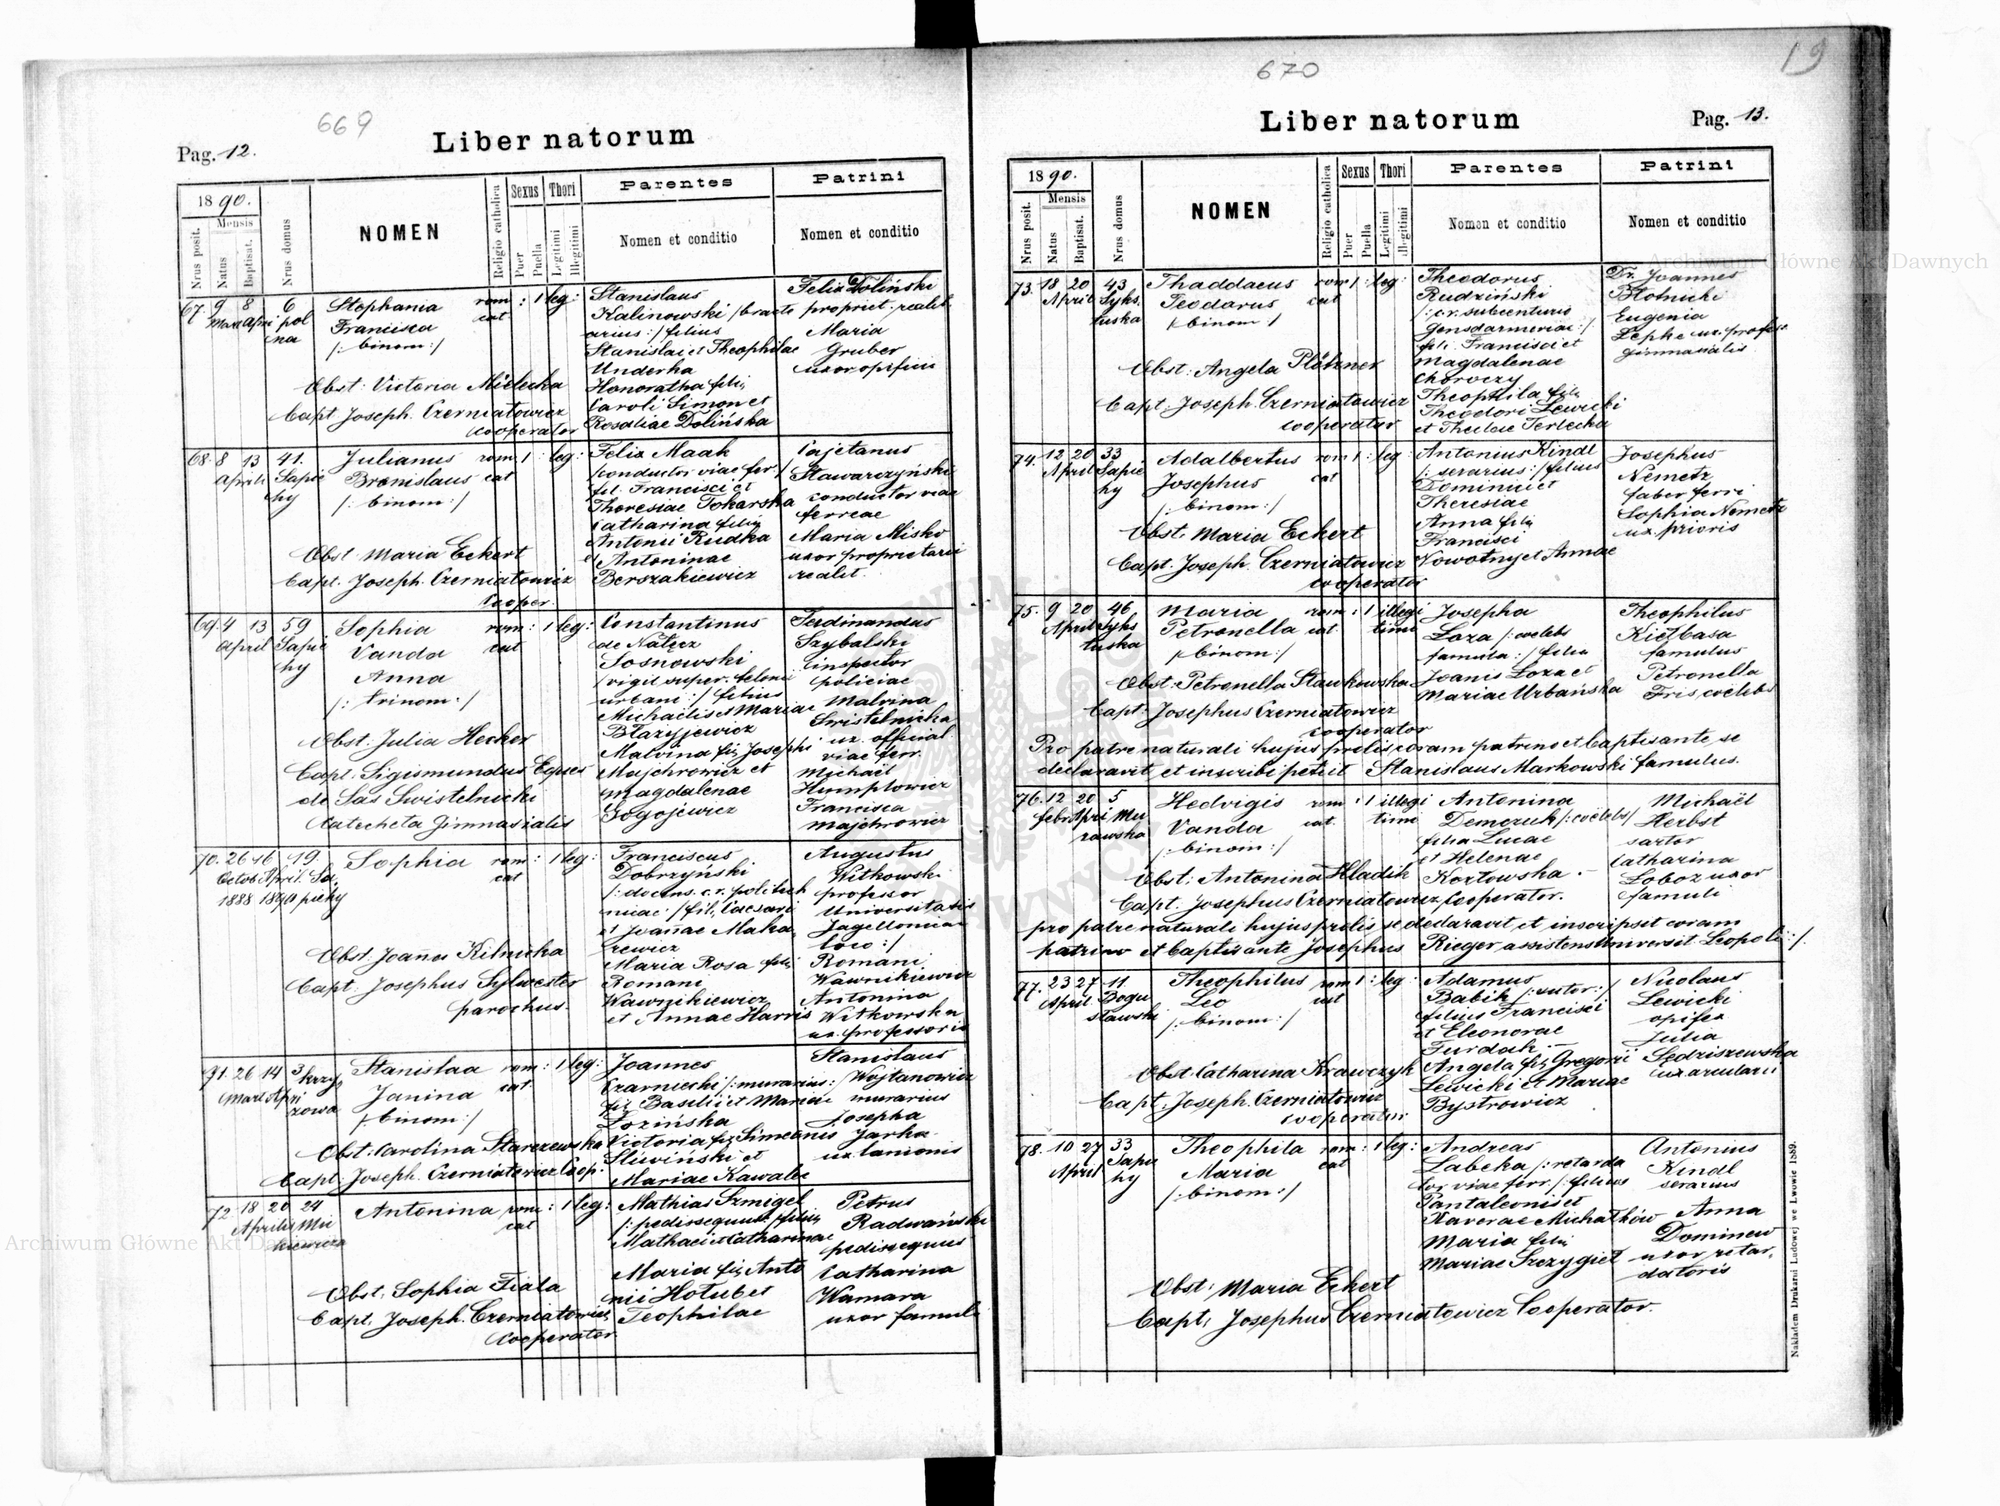 669
Pag. 12.
Liber natorum
1890.
Mensis
Nrus posit.
Natus
Baptisat.
Nrus domus
NOMEN
Religio catholica
Sexus
Puer
Puella
Thori
Legitimi
Illegitimi
Parentes
Nomen et conditio
Patrini
Nomen et conditio
67. 9 8 6 Stephania rom : 1 leg: Stanislaus Felix Doliński
Mart April pol cat Kalinowski propriet. realit.
na Francisca arius :/ filius Maria
/: binom :/ Stanislai et Theophilae Gruber
Underka uxor opificis
Obst. Victoria Mielecka Honoratha filia
Bapt. Joseph. Czerniatowicz Caroli Simon et
cooperator Rosaliae Dolińska
68. 8 13 41. Julianus rom 1 : leg: Felix Maak Cajetanus
Aprili Sapie Bronislaus cat conductor viae fer. Stawarczyński
hy /: binom :/ fil. Francisci et conductor viae
Theresiae Tokarska ferreae
Catharina filia
Antonii Rudka Maria Misko
Obst. Maria Eckert et Antoninae uxor proprietarii
Bapt. Joseph. Czerniatowicz Berszakiewicz realit.
Cooper.
69. 4 13 59 Sophia rom : 1 leg: Constantinus Ferdinandus
April Sapie cat de Nałęcz Szybalski
hy Vanda Sosnowski inspector
Anna /vigil super. telonii policiae
/: trinom :/ urbani :/ filius Malvina
Michaelis et Mariae Swistelnicka
Obst. Julia Hecker Błażyjewicz ux. official.
Malvina fil. Josephi viae ferr.
Bapt. Sigismundus Eques Majchrowicz et Michaël
de Sas Swistelnicki Magdalenae Humplowicz
Catecheta Gimnasialis Gogojewicz Francisca
Majchrowicz
70. 26 16 19. Sophia rom : 1 leg: Franciscus Augustus
Octob April. Sa cat Dobrzyński Witkowski
1888 1890 piehy /: docens. c.r. politech professor
nicae :/ fil. Caesari Universitatis
et Joannae Maka Jagellonicae
Obst. Joanna Kilnicka rewicz loco :/
Maria Rosa filia Romani
Bapt. Josephus Sylwester Romani Wawnikiewicz
parochus. Wawnikiewicz Antonina
et Annae Harris Witkowska
ux. professoris
71. 26 14 3 Stanislaa rom : 1 leg: Joannes Stanislaus
Mart Apri krzy Janina cat. Czarniecki /: murarius :/ Wojtanowicz
zowa /binom :/ fil. Basilii et Mariae murarius
Łozińska Josepha
Obst: Carolina Starzewska Victoria fil. Simeonis Jarka
Śliwiński et ux lanionis
Bapt. Joseph. Czerniatowicz Coop. Mariae Kawalec
72. 18 20 24 Antonina rom : 1 leg: Mathias Szmigel Petrus
Aprilis Mic cat /: pedissequus :/ filius Radwański
kiewicza Mathaei et Catharinae pedissequus
Maria fil. Anto Catharina
Obst. Sophia Fiala nii Hołub et Wamara
Bapt. Joseph. Czerniatowicz Teophilae uxor famuli
cooperator
670
19
Liber natorum
Pag. 13.
1890.
Mensis
Nrus posit.
Natus
Baptisat.
Nrus domus
NOMEN
Religio catholica
Sexus
Puer
Puella
Thori
Legitimi
Illegitimi
Parentes
Nomen et conditio
Patrini
Nomen et conditio
73. 18 20 43 Thaddaeus rom 1 : leg: Theodorus Dr. Joannes
April Syks. Teodarus cat Rudziński Błotnicki
tuska /binom / /: c.r. subcenturio Eugenia
Gensdarmeriae :/ Lephe ux. profess.
fil. Francisci et gimnasialis
Obst: Angela Plötzner Magdalenae
Choroczy
Bapt: Joseph. Czerniatowicz Theophila filia
cooperator Theodori Lewicki
et Theclae Terlecka
74. 12 20 33 Adalbertus rom 1 : leg: Antonius Kindl Josephus
April Sapie Josephus cat /: serarius :/ filius Nemetz
hy /: binom :/ Dominici et faber ferri
Theresiae Sophia Nemetz
Obst. Maria Eckert Anna filia ux. prioris
Francisci
Bapt. Joseph. Czerniatowicz Nowotny et Annae
cooperator
75. 9 20 46 Maria rom : 1 illegi Josepha Theophilus
April Syks Petronella cat. timi Łoza /: coelebs Kiełbasa
tuska /binom :/ famula :/ filia famulus
Obst. Petronella Stankowska Joanis Łoza et Petronella
Bapt. Josephus Czerniatowicz Mariae Urbańska Fris coelebs
cooperator
Pro patre naturali hujus prolis coram patrino et baptisante se
declaravit et inscribi petiit Stanislaus Markowski famulus.
76. 12 20 5 Hedvigis rom : 1 illegi Antonina Michaël
febr April Mu Vanda cat. timi Demczuk /: coelebs/ Herbst
rawska /: binom :/ filia Lucae sartor
et Helenae Catharina
Obst: Antonina Hladik Kozłowska .- Loboz uxor
Bapt. Josephus Czerniatowicz Cooperator. famuli
pro patre naturali hujus prolis se declaravit et inscripsit coram
patrino et baptisante Josephus Rieger assistens universit. Leopoli :/.
77. 23 27 11. Theophilus rom 1 : leg: Adamus Nicolaus
April Bogu Leo cat Babik /: sutor :/ Lewicki
sławski /: binom :/ filius Francisci opifex
et Eleonorae Julia
Furdak .- Sędziszewska
Obst. Catharina Krawczyk Angela fil. Gregorii ux arcularii
Bapt. Joseph. Czerniatowicz Lewicki et Mariae
cooperator Bystrowicz
78. 10 27 33 Theophila rom : 1 leg: Andreas Antonius
April Sapie Maria cat Labeka /: retarda Kindl
hy /: binom :/ tor viae ferr :/ filius serarius
Pantaleonis et Anna
Xaverae Michałków Dominew
Maria filia uxor retar,
Mariae Szczygieł datoris
Obst: Maria Eckert
Bapt. Josephus Czerniatowicz Cooperator.
Nakładem Drukarni Ludowej we Lwowie 1889.
Archiwum Główne Akt Dawnych
Archiwum Główne Akt Dawnych